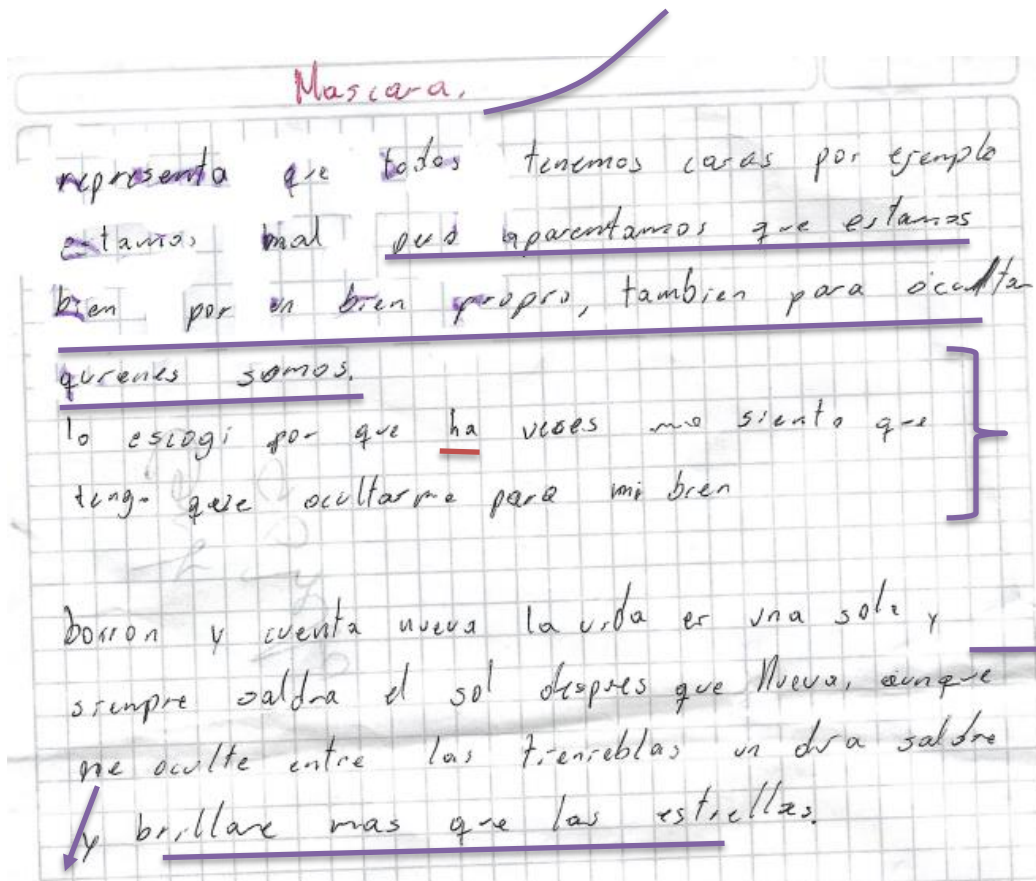 Mascara.
representa que todos tenemos caras por ejemplo
estamos mal pero aparentamos que estamos
bien por un bien propio, tambien para ocultar
quienes somos.
lo escogi por que ha veses me siento que
tengo que ocultarme para mi bien
borron y cuenta nueva la vida es una sola y
siempre saldra el sol despues que llueva, aunque
me oculte entre las tienieblas un dia saldre
y brillare mas que las estrellas.